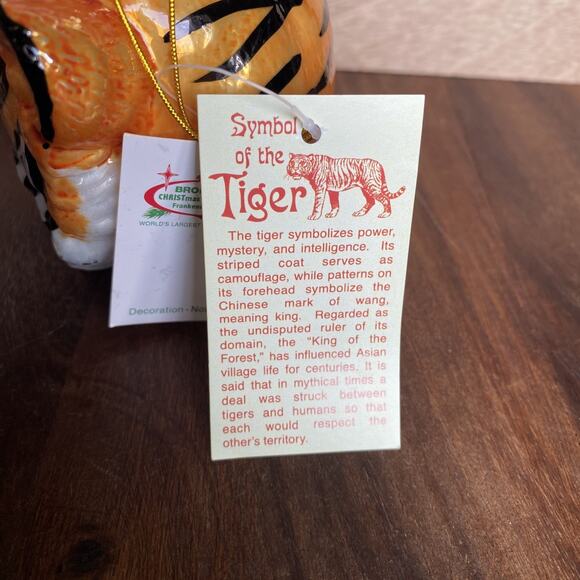 Symbol
of the
Tiger
The tiger symbolizes power,
mystery, and intelligence. Its
striped coat serves as
camouflage, while patterns on
its forehead symbolize the
Chinese mark of wang,
meaning king. Regarded as
the undisputed ruler of its
domain, the "King of the
Forest," has influenced Asian
village life for centuries. It is
said that in mythical times a
deal was struck between
tigers and humans so that
each would respect the
other's territory.
CHRISTmas
WORLD'S LARGEST
Decoration -